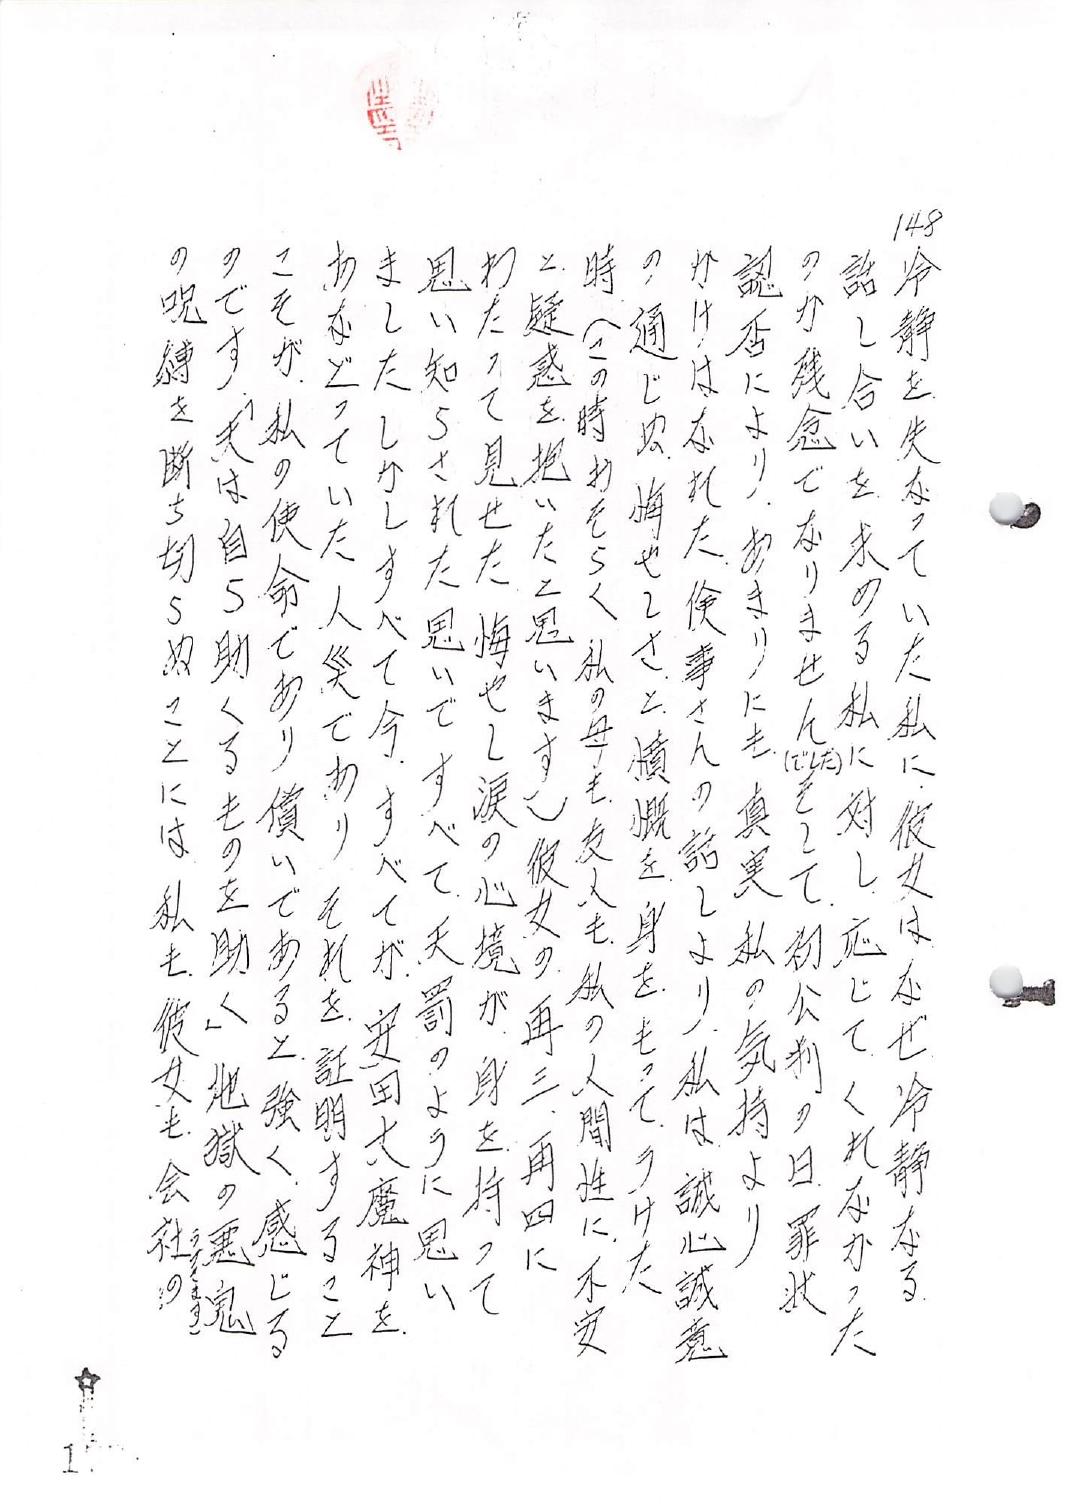 148
冷静を失なっていた私に、彼女はなぜ冷静なる
話し合いを求める私に対し、応じてくれなかった
のか残念でなりません(でした)そして、初公判の日、罪状
認否により、あまりにも、真実、私の気持より
かけはなれた、倹事さんの話しより、私は、誠心誠意
の、通じぬ、悔やしさ、と、憤慨を、身を、もって、うけた
時、(この時おそらく、私の母も、友人も、私の人間性に、不安
と、疑惑を、抱いたと思います)彼女の、再三、再四に
わたって見せた、悔やし涙の心境が、身を、持って
思い知らされた思いです、すべて、天罰のように思い
ましたしかしすべて今、すべてが、安田大魔神を、
あなどっていた人災であり、それを、証明すること
こそが、私の使命であり、償いであると、強く、感じる
のです、「天は自ら助くるものを助く」地獄の悪鬼
の呪縛を断ち切らぬことには、私も、彼女も、会社の
1